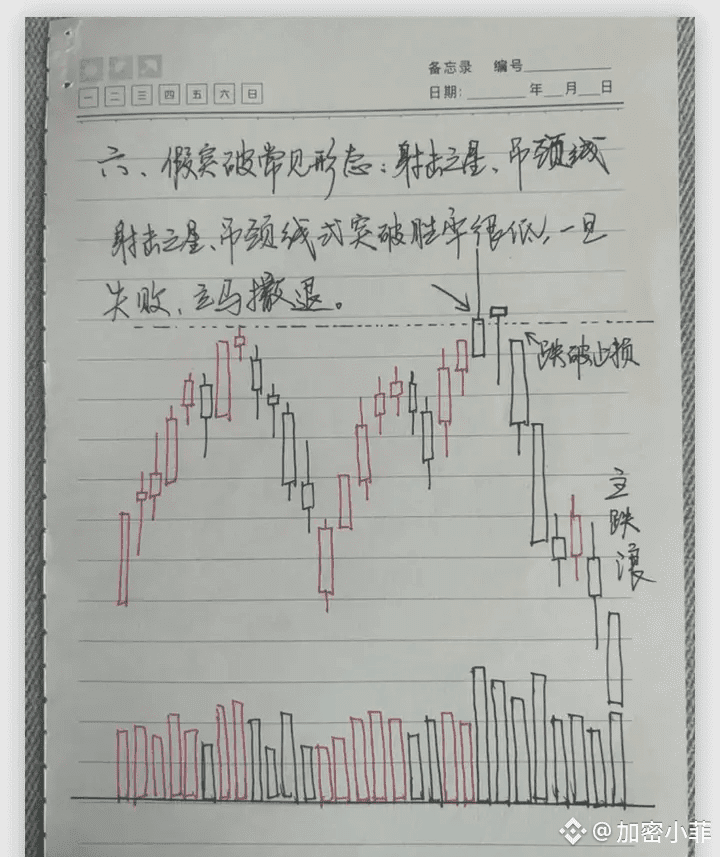 备忘录 编号
一 二 三 四 五 六 日
日期: 年 月 日
六、假突破常见形态:射击之星、吊颈线
射击之星、吊颈线式突破胜率很低,一旦
失败,立马撤退。
跌破止损
主
跌
浪
@加密小菲